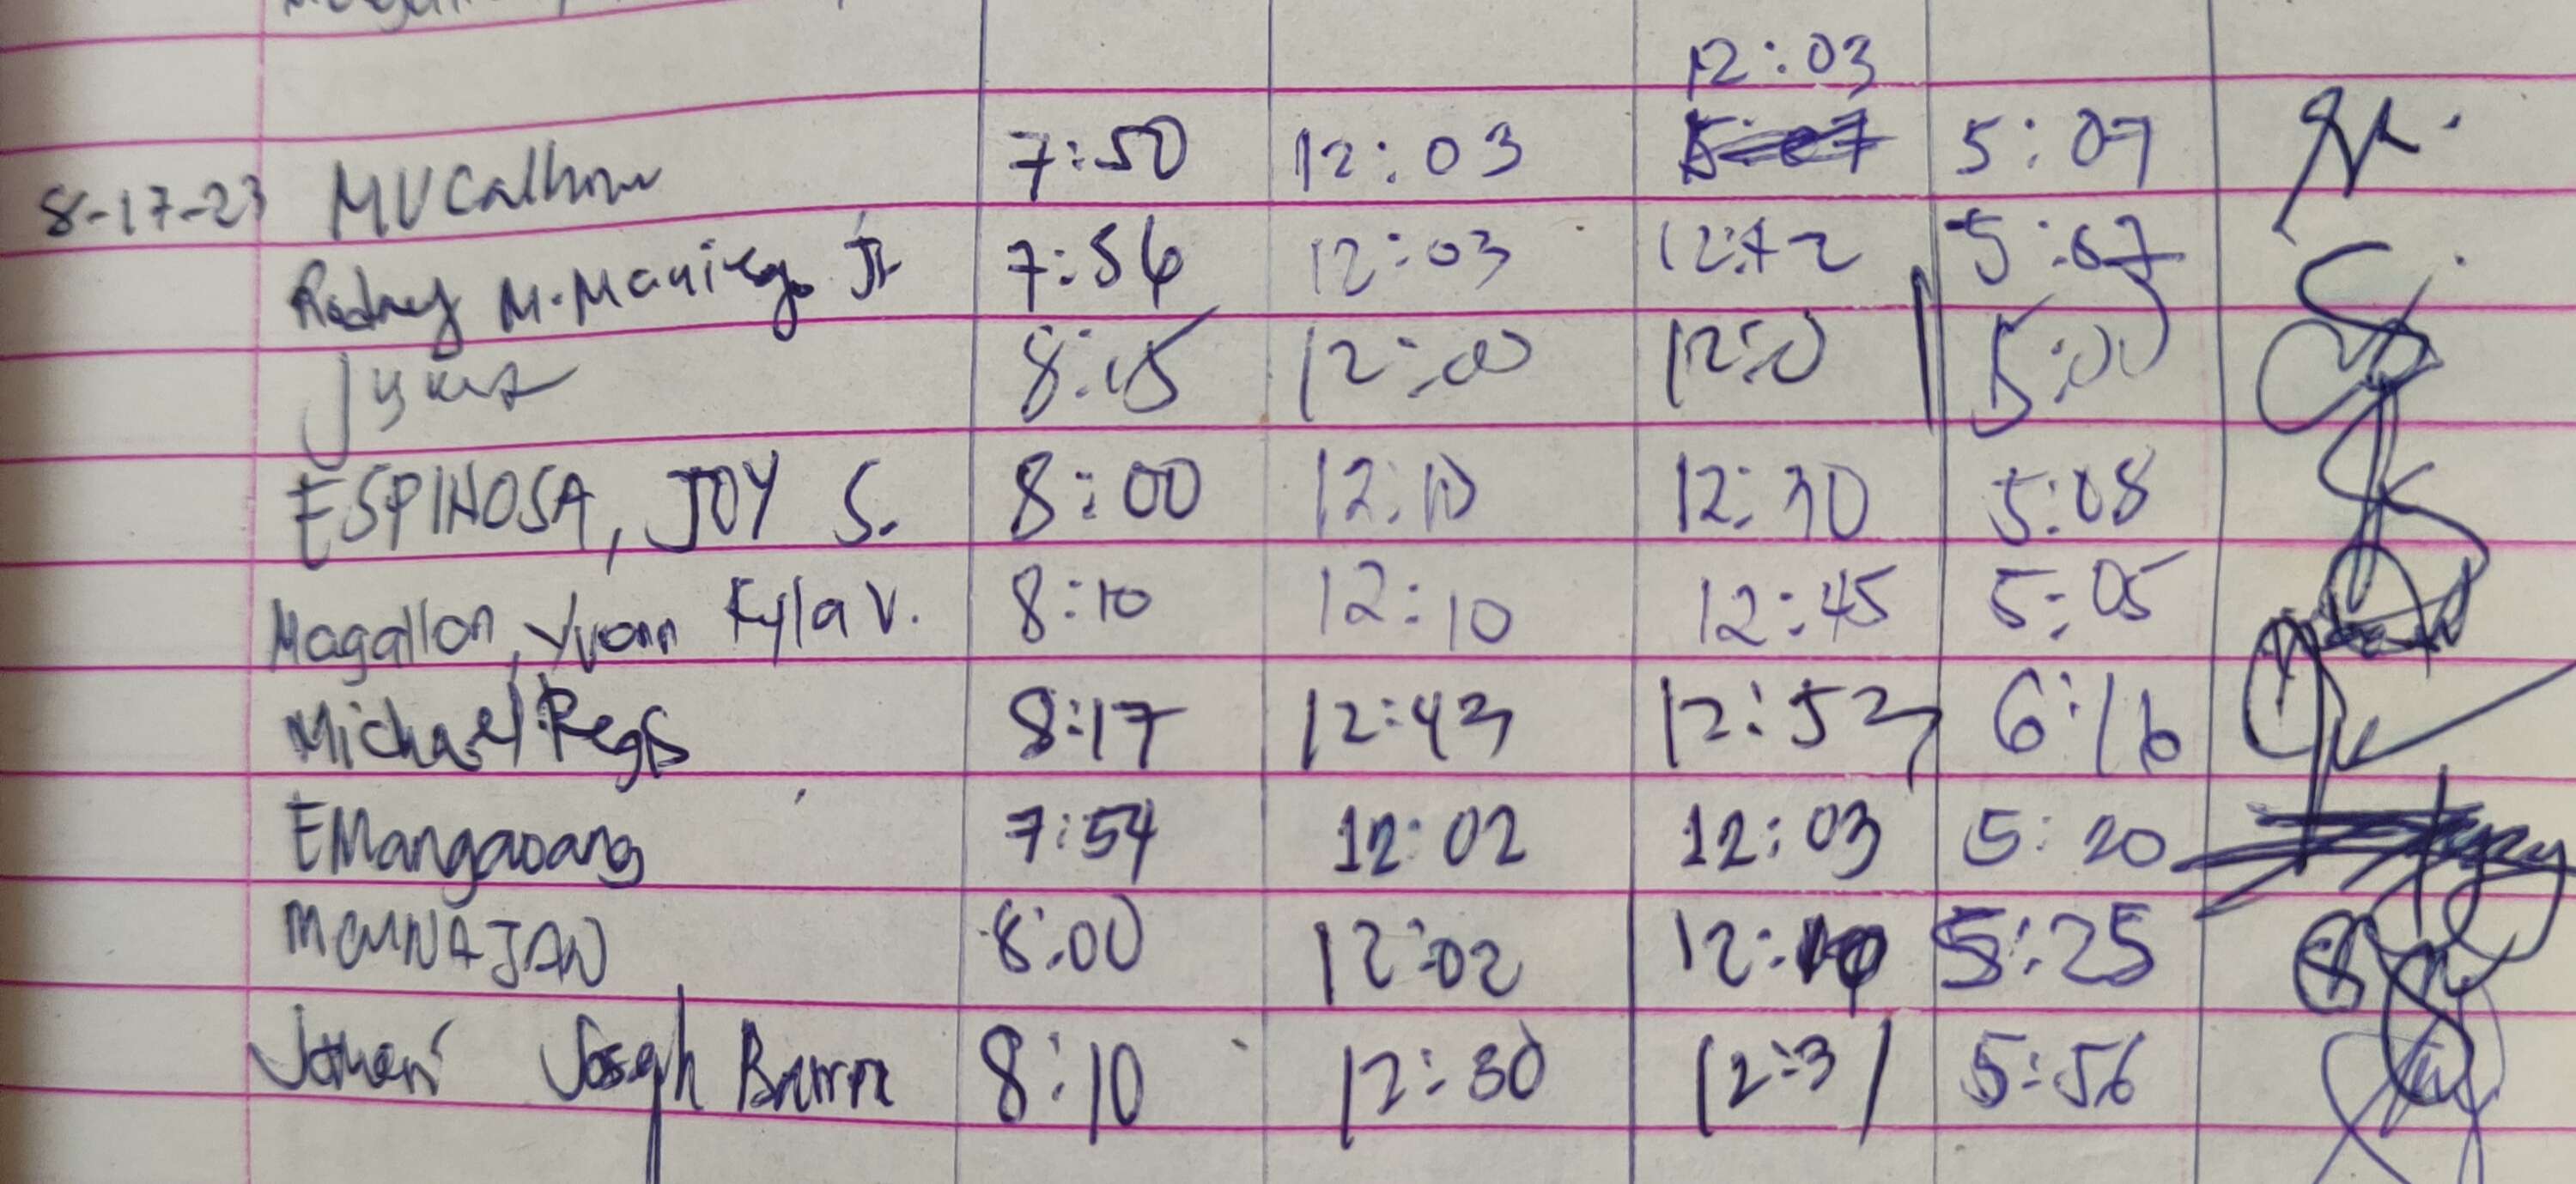 12:03
8-17-23 MVCalhoun 7:50 12:03 5:07 5:07
Rodney M. Maniego Jr 7:56 12:03 12:12 5:07
8:15 12:00 12:01 5:00
ESPINOSA, JOY S. 8:00 12:10 12:30 5:08
Magallon, Yvonn Kyla V. 8:10 12:10 12:45 5:05
Michael Regis 8:17 12:43 12:52 6:16
EMangaoang 7:54 12:02 12:03 5:20
8:00 12:02 12:10 5:25
Joseph 8:10 12:30 12:31 5:56